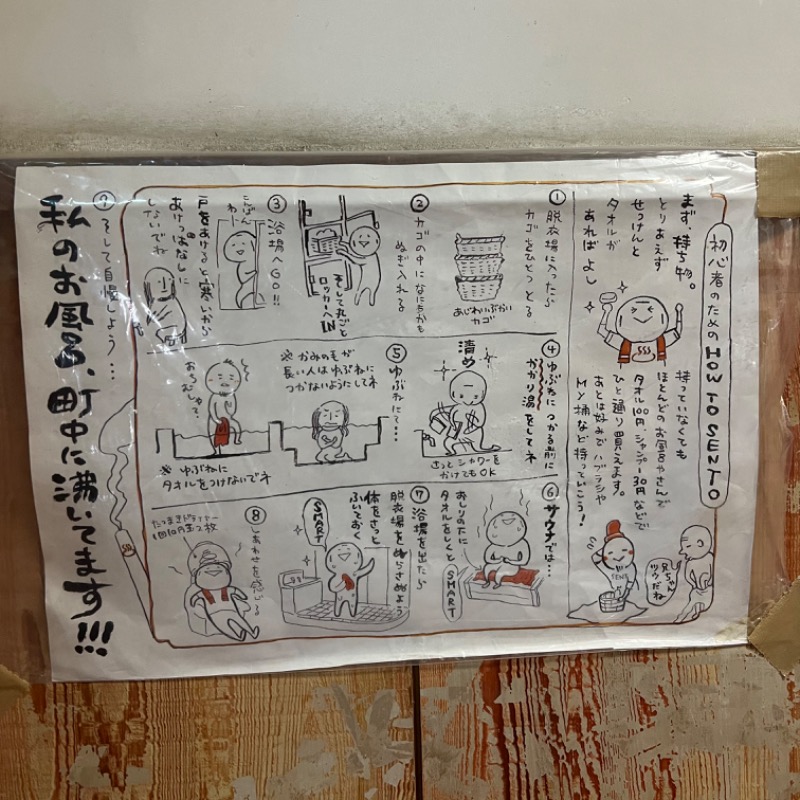 初心者のための HOW TO SENTO
まず、持ち物。
とりあえず
せっけんと
タオルが
あればよし
持っていなくても
ほとんどのお風呂やさんで
タオル100円、シャンプー30円などで
ひと通り買えます。
あとは好みでハブラシや
MY桶など持っていこう!
兄ちゃん
ツウだね
① 脱衣場に入ったら
カゴをひとつとる
あじわいぶかい
カゴ
② カゴの中になにもかも
ぬぎ入れる
そして丸ごと
ロッカーへIN
③ 浴場へGO!!
こんばん
わー
戸をあけると寒いから
あけっぱなしに
しないでね
④ ゆぶねにつかる前に
かかり湯をしてネ
清め
さっとシャワーを
かけてもOK
⑤ ゆぶねにて…
※かみのモが
長い人はゆぶねに
つかないようにしてネ
おちむしゃで?
※ゆぶねに
タオルをつけないでネ
⑥ サウナでは…
おしりの下に
タオルをしくと
SMART
⑦ 浴場を出たら
脱衣場をぬらさぬよう
体をさっと
ふいておく
SMART
⑧ しあわせを感じる
1回10円玉2枚
そして自慢しよう…
私のお風呂、町中に沸いてます!!!